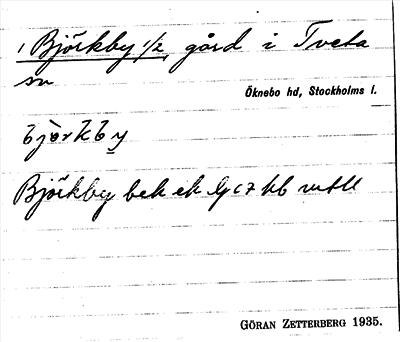 1 Björkby 1/2, gård i Tveta
sn
Öknebo hd, Stockholms l.
bjö̀rkby
Björkby bek ek
GÖRAN ZETTERBERG 1935.